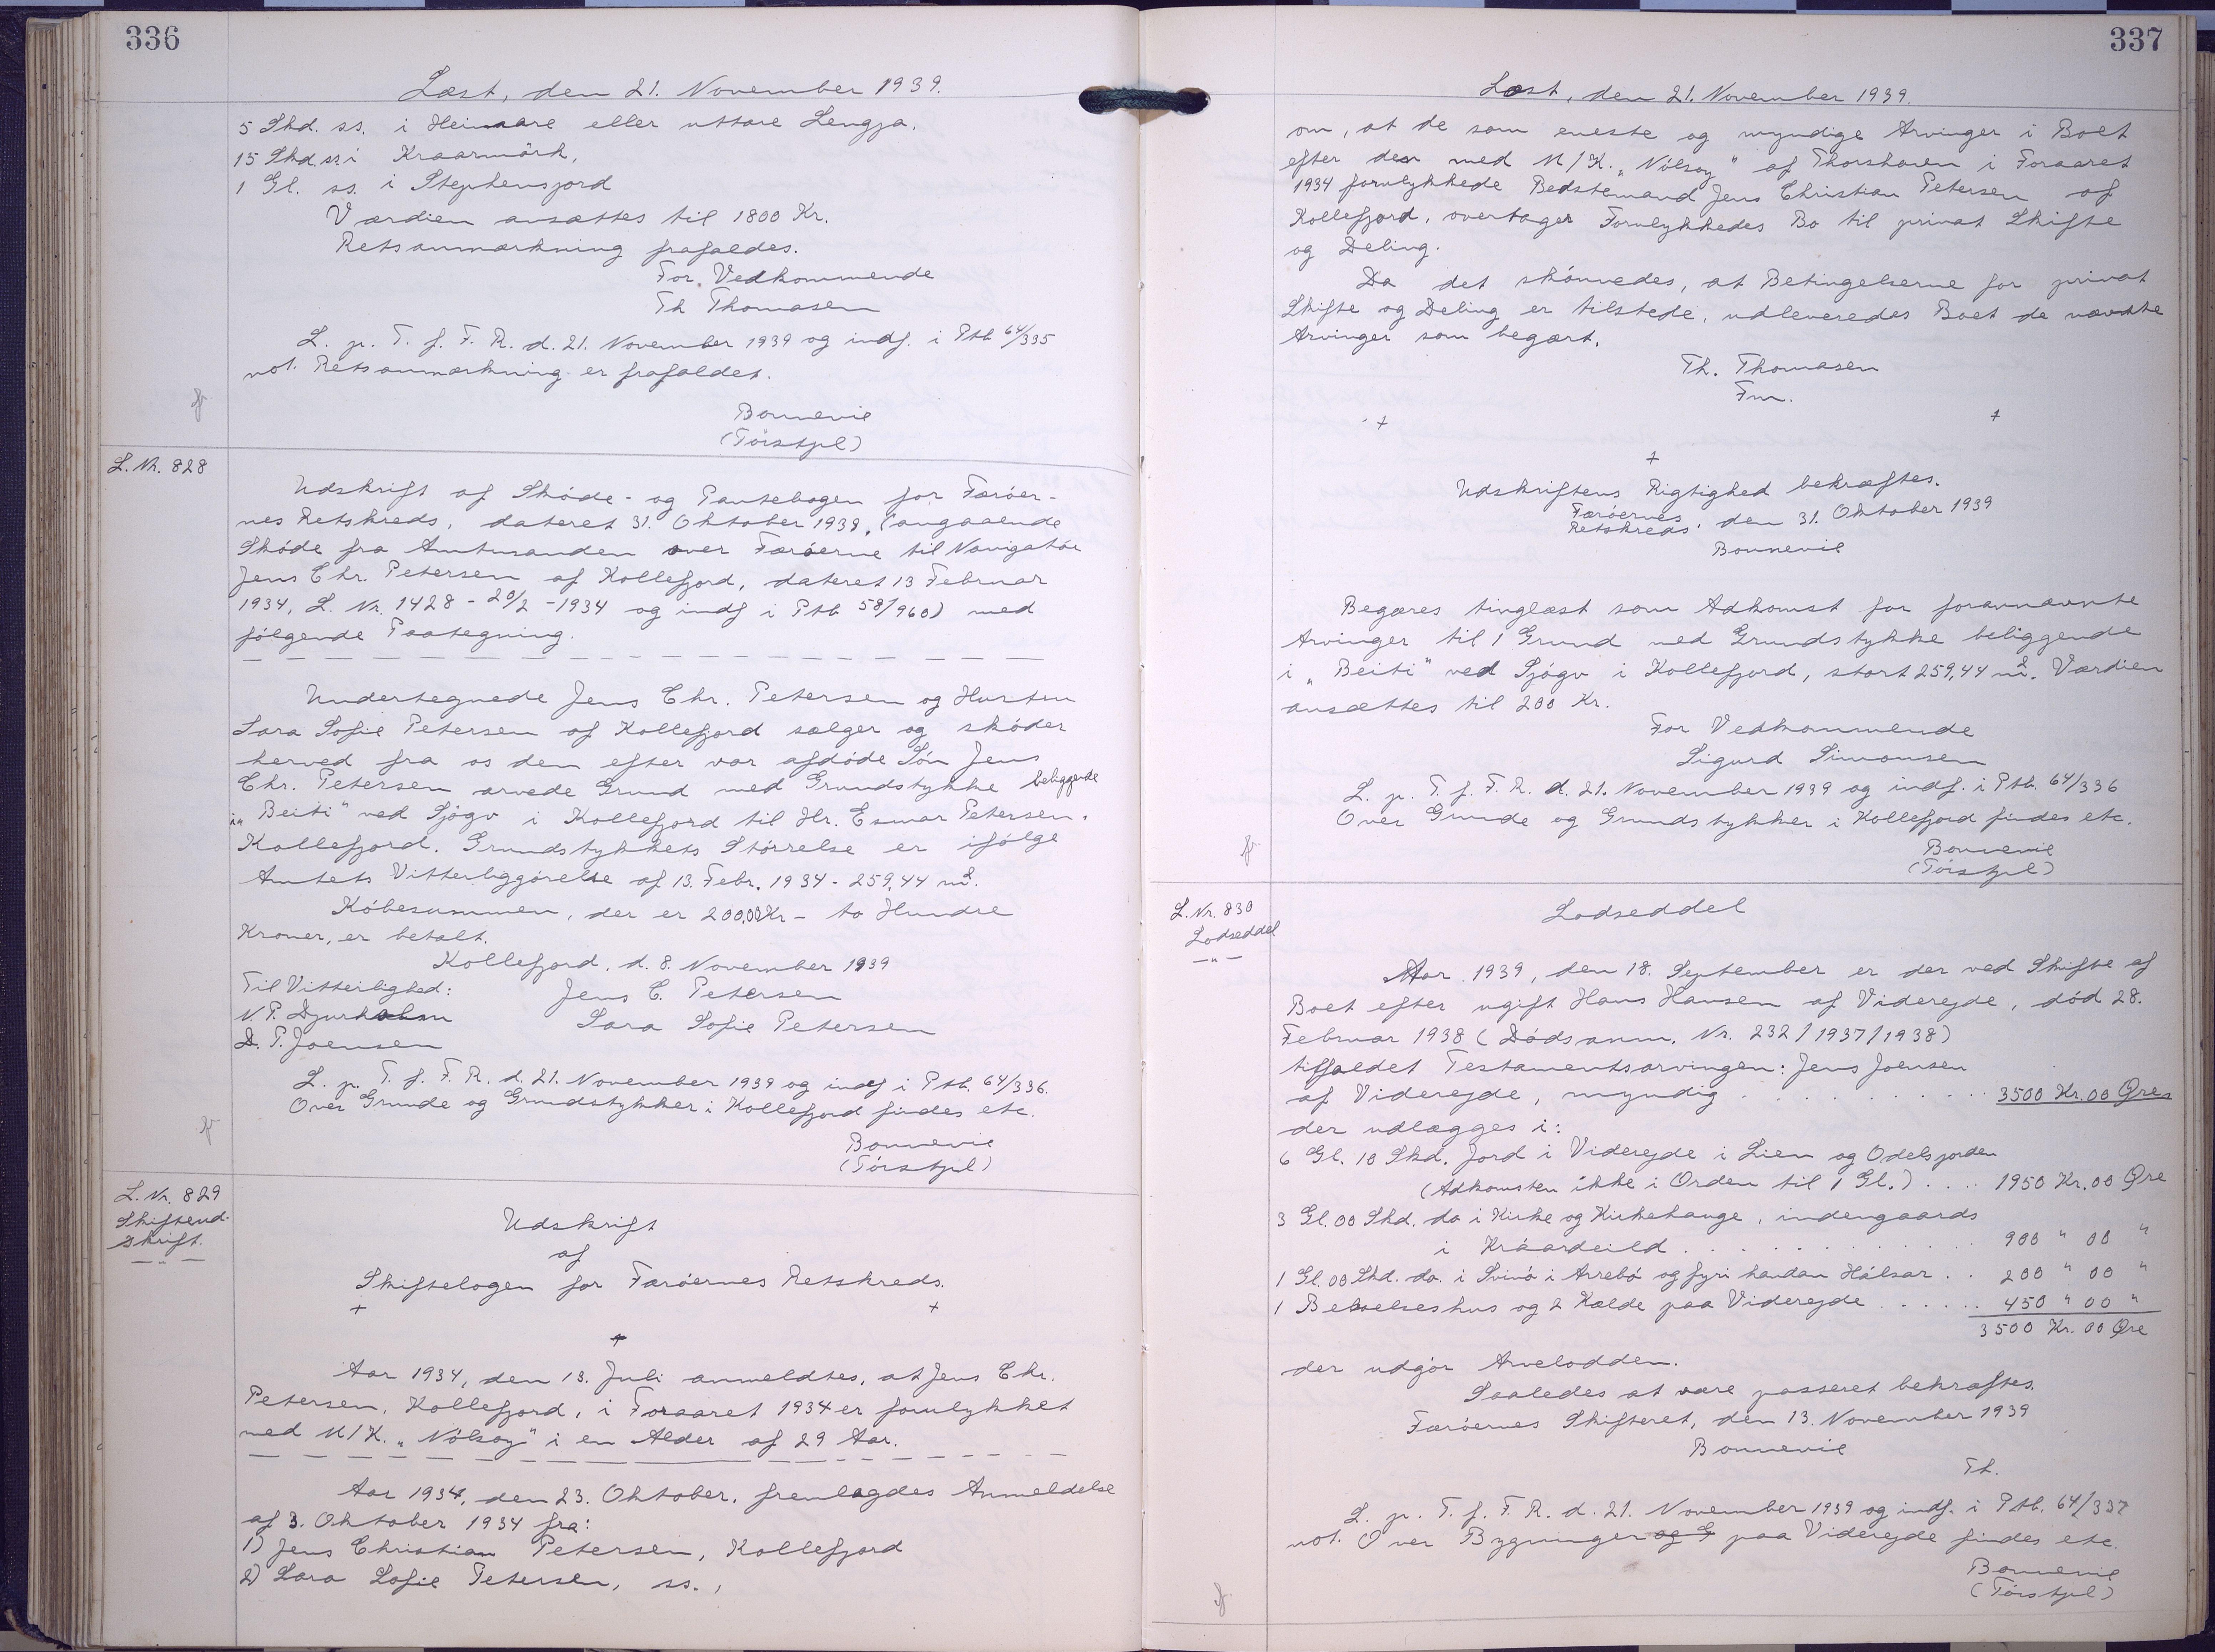 336
Læst, den 21. November 1939.
5 Skd. ss. i Heimaare eller uttare Lengja.
15 Skd. ss. i Kraarmörk,
1 Gl. ss. i Stephensjord
Værdien ansættes til 1800 Kr.
Retsanmærkning frafaldes.
For Vedkommende
Th Thomasen
L. p. T. f. F. R. d. 21. November 1939 og indf. i Ptb 64/335
not. Retsanmærkning er frafaldet.
Bonnevie
L. Nr. 828
Udskrift af Skøde- og Pantebogen for Færøer-
nes Retskreds, dateret 31. Oktober 1939, (angaaende
Skøde fra Amtmanden over Færøerne til Navigatør
Jens Chr. Petersen af Kollefjord, dateret 13 Februar
1934, L. Nr. 1428 - 20/2 - 1934 og indf i Ptb 58/960) med
følgende Paategning.
Undertegnede Jens Chr. Petersen og Hustru
Sara Sofie Petersen af Kollefjord sælger og skøder
herved fra os den efter vor afdøde Søn Jens
Chr. Petersen arvede Grund med Grundstykke beliggende
i „Beiti“ ved Sjógv i Kollefjord til Hr. Esmar Petersen.
Kollefjord. Grundstykkets Størrelse er ifølge
Amtets Vitterliggørelse af 13. Febr. 1934 - 259,44 m2.
Købesummen, der er 200,00 Kr - to Hundre
Kroner, er betalt.
Kollefjord, d. 8. November 1939
Til Vitterlighed:
Jens C. Petersen
N. P. Djurholm
Sara Sofie Petersen
D. P. Joensen
L. p. T. f. F. R. d. 21. November 1939 og indf i Ptb. 64/336.
Over Grunde og Grundstykker i Kollefjord findes etc.
Bonnevie
L. Nr. 829
Skifteud-
skrift.
Udskrift
af
Skiftebogen for Færøernes Retskreds.
Aar 1934, den 13. Juli anmeldtes, at Jens Chr.
Petersen, Kollefjord, i Foraaret 1934 er forulykket
med M/K. „Nólsoy“ i en Alder af 29 Aar.
Aar 1934, den 23. Oktober. fremlagdes Anmeldelse
af 3. Oktober 1934 fra:
1) Jens Christian Petersen, Kollefjord
2) Sara Sofie Petersen, ss.,
337
Læst, den 21. November 1939.
om, at de som eneste og myndige Arvinger i Boet
efter den med M/K. „Nólsoy“ af Thorshavn i Foraaret
1934 forulykkede Bedstemand Jens Christian Petersen af
Kollefjord, overtager Forulykkedes Bo til privat Skifte
og Deling.
Da det skønnedes, at Betingelserne for privat
Skifte og Deling er tilstede, udleveredes Boet de nævnte
Arvinger som begært.
Th. Thomasen
Fm.
Udskriftens Rigtighed bekræftes.
Færøernes
Retskreds, den 31. Oktober 1939
Bonnevie
Begæres tinglæst som Adkomst for forannævnte
Arvinger til 1 Grund med Grundstykke beliggende
i „Beiti“ ved Sjógv i Kollefjord, stort 259,44 m2. Værdien
ansættes til 200 Kr.
For Vedkommende
Sigurd Simonsen
L. p. T. f. F. R. d. 21. November 1939 og indf. i Ptb. 64/336
Over Grunde og Grundstykker i Kollefjord findes etc.
Bonnevie
L. Nr. 830
Lodseddel
Lodseddel
Aar 1939, den 18. September er der ved Skifte af
Boet efter ugift Hans Hansen af Viderejde, død 28.
Februar 1938 (Dødsanm. Nr. 232/1937/1938)
tilfaldet Testamentsarvingen: Jens Joensen
af Viderejde, myndig . . . . . . . . . . 3500 Kr. 00 Øre
der udlægges i:
6 Gl. 10 Skd. Jord i Viderejde i Lien og Odelsjorden
(Adkomsten ikke i Orden til 1 Gl.) . . . . 1950 Kr. 00 Øre
3 Gl. 00 Skd. do i Kirke og Kirkehauge, indengaards
i Kráardeild . . . . . . . . . . . . 900 " 00 "
1 Gl. 00 Skd. do. i Svinø i Arrebø og fyri handan Hálsar . . 200 " 00 "
1 Beboelseshus og 2 Kælde paa Viderejde . . . . . . 450 " 00 "
3500 Kr. 00 Øre
der udgør Arvelodden.
Saaledes at være passeret bekræftes.
Færøernes Skifteret, den 13. November 1939
Bonnevie
Th.
L. p. T. f. F. R. d. 21. November 1939 og indf. i Ptb. 64/337
not. Over Bygninger og G paa Viderejde findes etc.
Bonnevie